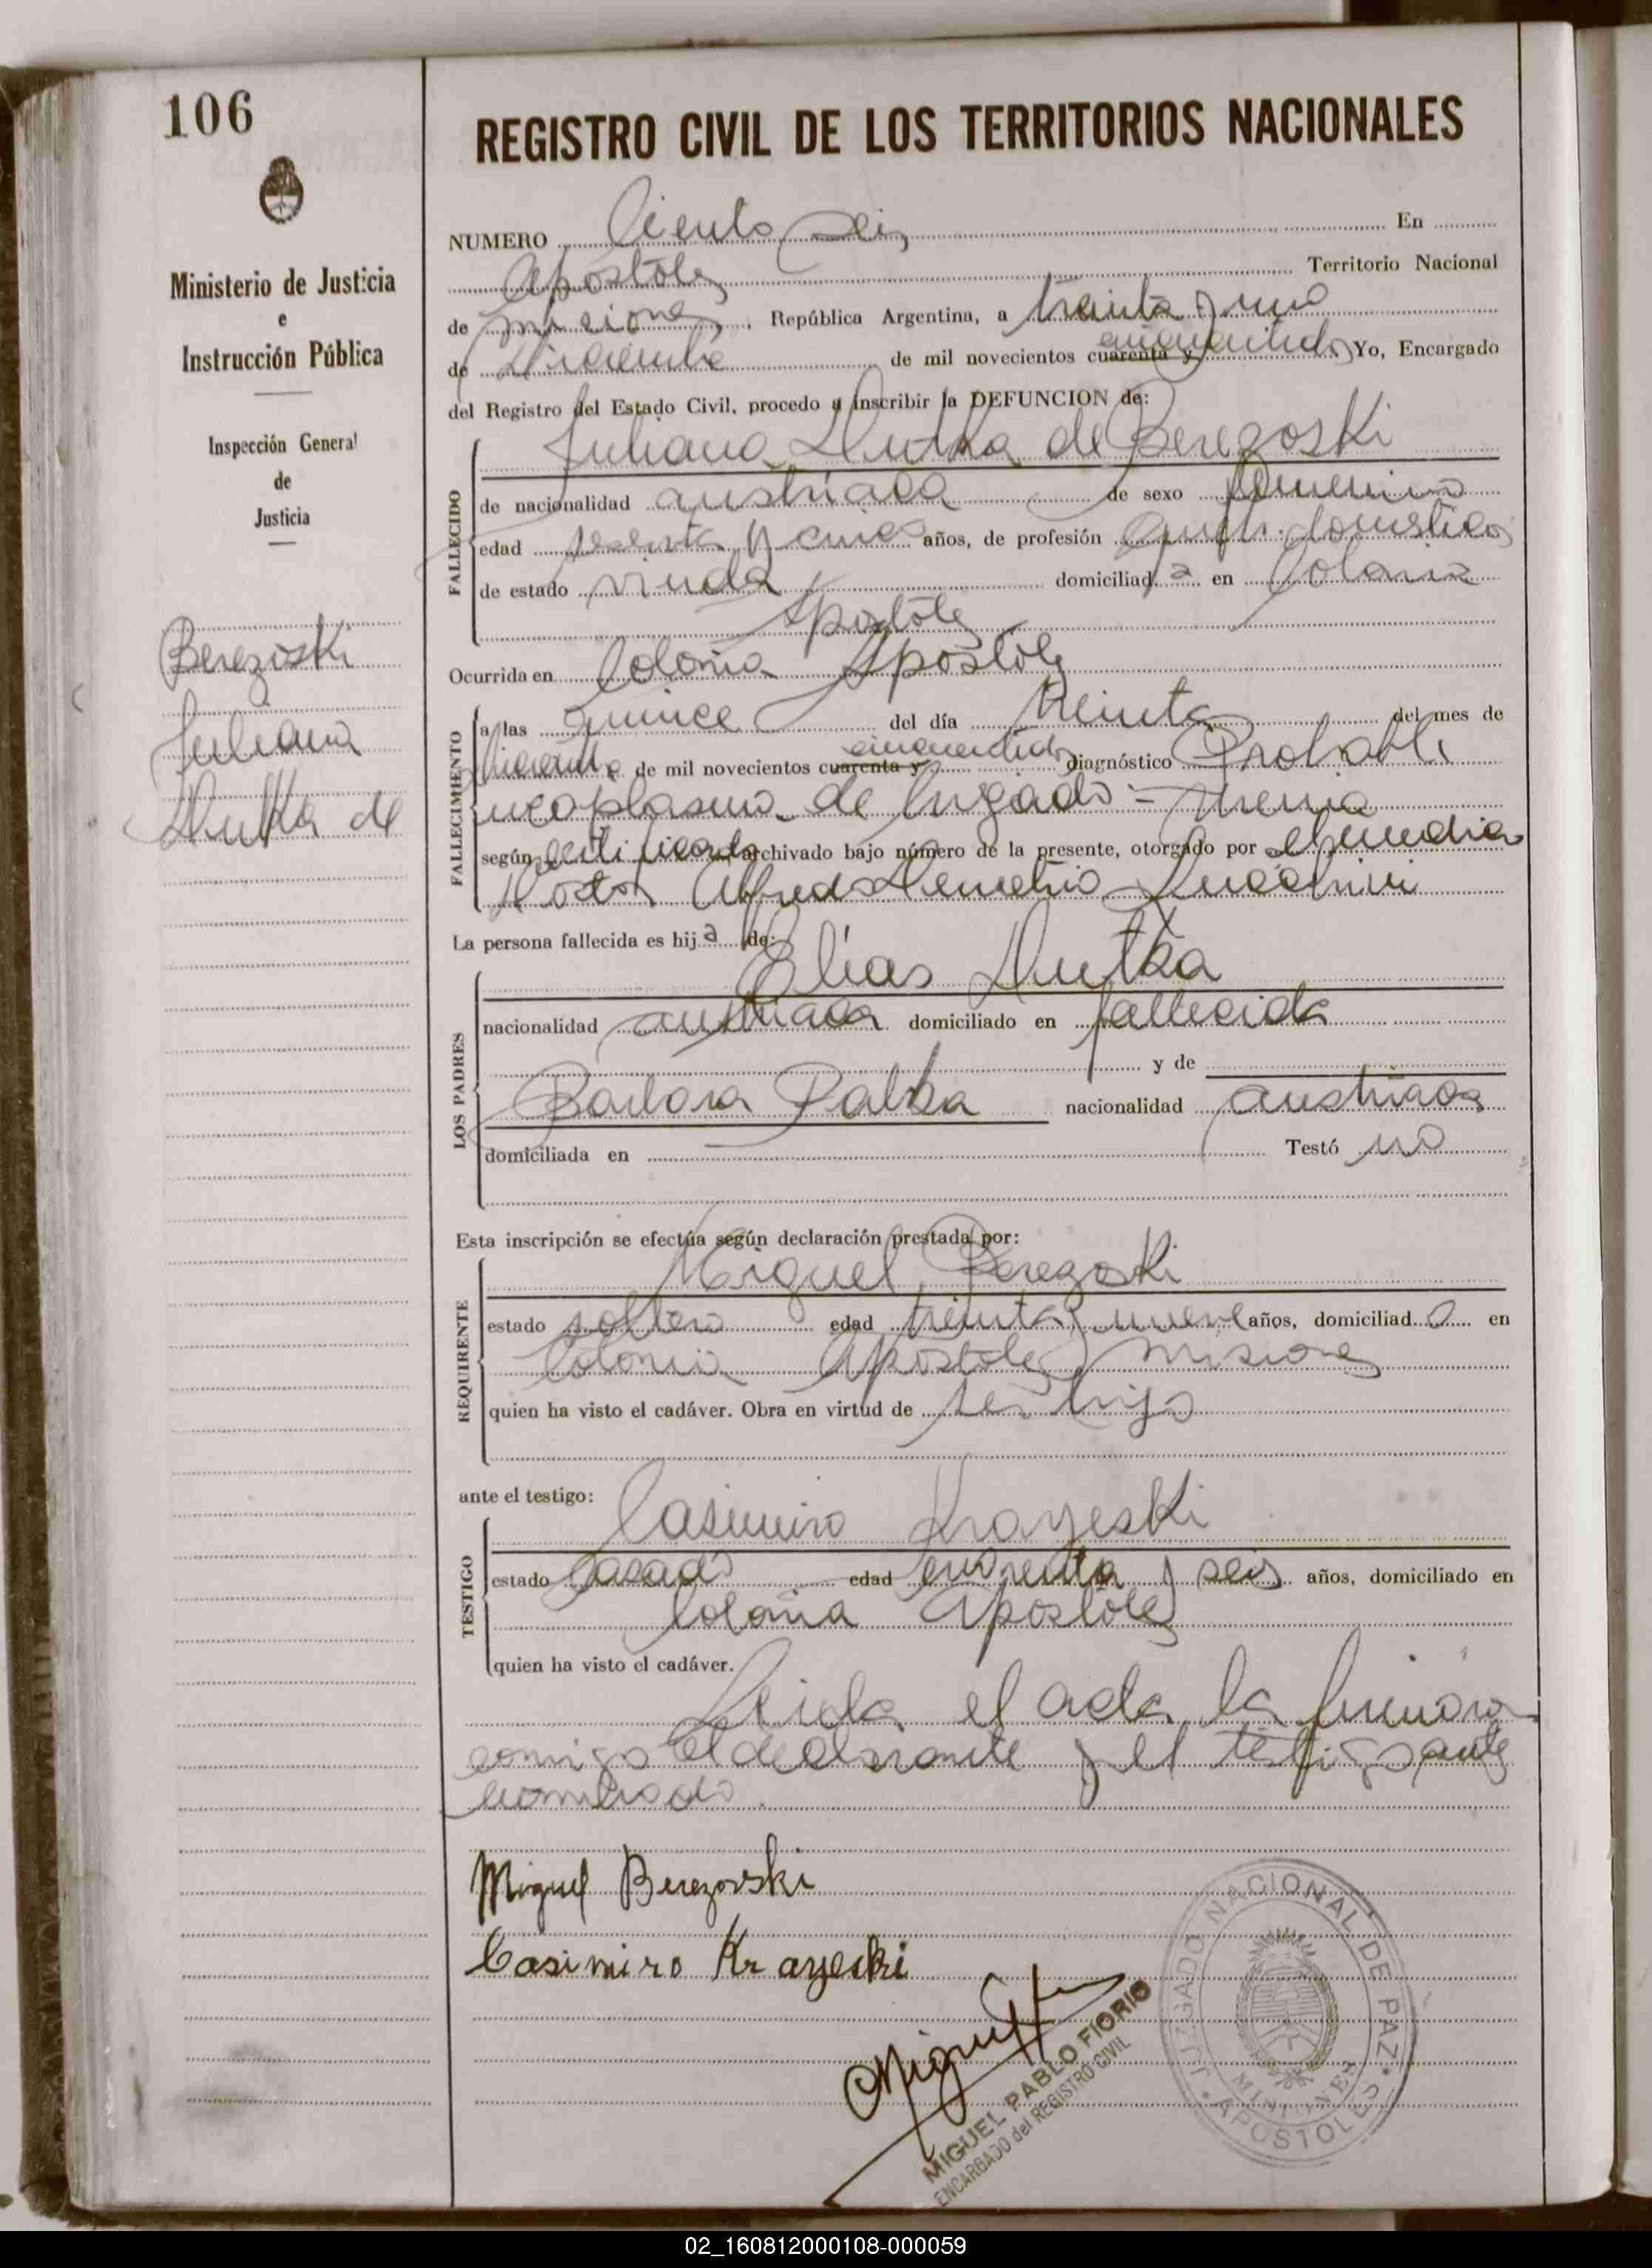 106
REGISTRO CIVIL DE LOS TERRITORIOS NACIONALES
Ministerio de Justicia
e
Instrucción Pública
Inspección General
de
Justicia
Berezoski
Juliana
Dutka de
NUMERO Ciento Seis En
Apostoles Territorio Nacional
de Misiones, República Argentina, a treinta y uno
de Diciembre de mil novecientos cuarenta y cincuentidos Yo, Encargado
del Registro del Estado Civil, procedo a inscribir la DEFUNCION de:
Juliana Dutka de Berezoski
FALLECIDO
de nacionalidad austriaca de sexo femenino
edad sesenta y cinco años, de profesión domesticos
de estado viuda domiciliad a en Colonia
Apostoles
Ocurrida en Colonia Apostoles
FALLECIMIENTO
a las quince del día treinta del mes de
Diciembre de mil novecientos cuarenta y cincuentidos diagnóstico Probable
neoplasma de higado -
según certificado archivado bajo número de la presente, otorgado por
Doctor Alfredo Demetrio
La persona fallecida es hij a de:
Elias Dutka
LOS PADRES
nacionalidad austriaca domiciliado en fallecida
y de
Barbara Palka nacionalidad austriaca
domiciliada en Testó no
Esta inscripción se efectúa según declaración prestada por:
Miguel Berezoski
REQUIRENTE
estado soltero edad treinta y nueve años, domiciliad o en
Colonia Apostoles Misiones
quien ha visto el cadáver. Obra en virtud de ser hijo
ante el testigo:
Casimiro Krayeski
TESTIGO
estado casado edad cuarenta y seis años, domiciliado en
Colonia Apostoles
quien ha visto el cadáver.
Leida el acta la firmaron
conmigo el declarante y el testigo ante
nombrado.
Miguel Berezovski
Casimiro Krayeski
MIGUEL PABLO FIORIO
ENCARGADO del REGISTRO CIVIL
JUZGADO NACIONAL DE PAZ
MISIONES
APOSTOLES
02_160812000108-000059